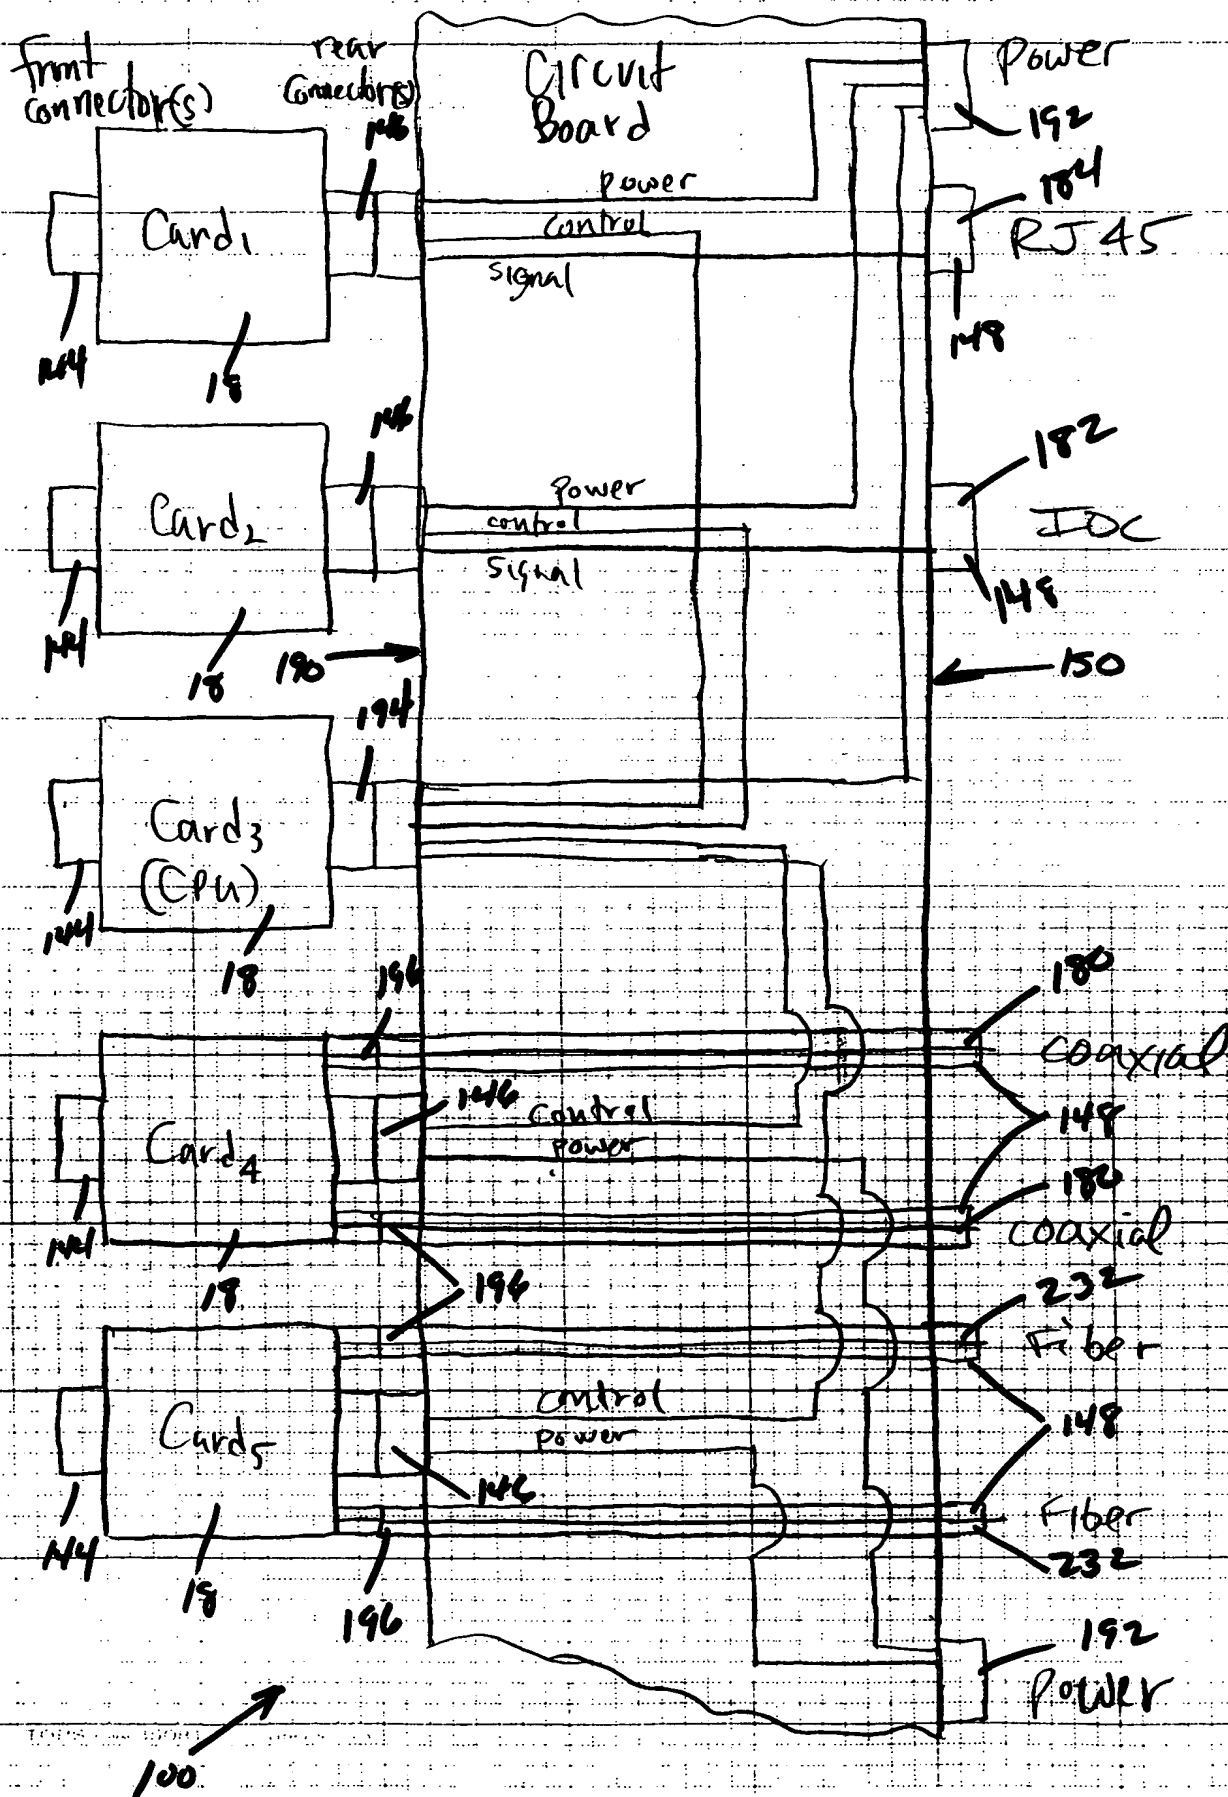 front
connector(s)
rear
connector(s)
Circuit
Board
Power
192
146
184
RJ 45
148
power
control
signal
Card1
144
18
146
182
IDC
148
Power
control
Signal
Card2
144
18
190
150
194
Card3
(CPU)
144
18
196
180
coaxial
146
control
power
148
Card4
180
coaxial
144
18
196
232
Fiber
control
power
148
Card5
146
Fiber
232
144
18
196
192
Power
100